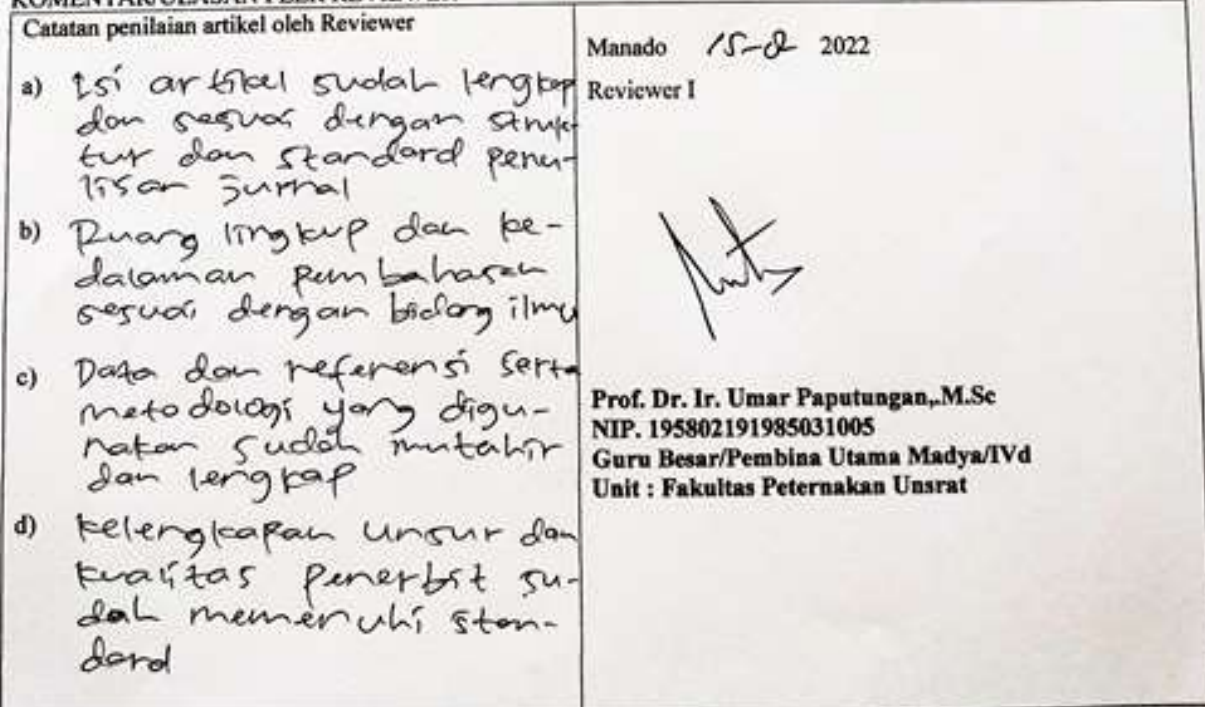 KOMENTAR/ULASAN PEER REVIEWER
Catatan penilaian artikel oleh Reviewer
a) Isi artikel sudah lengkap
dan sesuai dengan struk-
tur dan standard penu-
lisan jurnal
b) Ruang lingkup dan ke-
dalaman pembahasan
sesuai dengan bidang ilmu
c) Data dan referensi serta
metodologi yang digu-
nakan sudah mutahir
dan lengkap
d) Kelengkapan unsur dan
kualitas penerbit su-
dah memenuhi stan-
dard
Manado 2022
Reviewer I
Prof. Dr. Ir. Umar Paputungan,.M.Sc
NIP. 195802191985031005
Guru Besar/Pembina Utama Madya/IVd
Unit : Fakultas Peternakan Unsrat